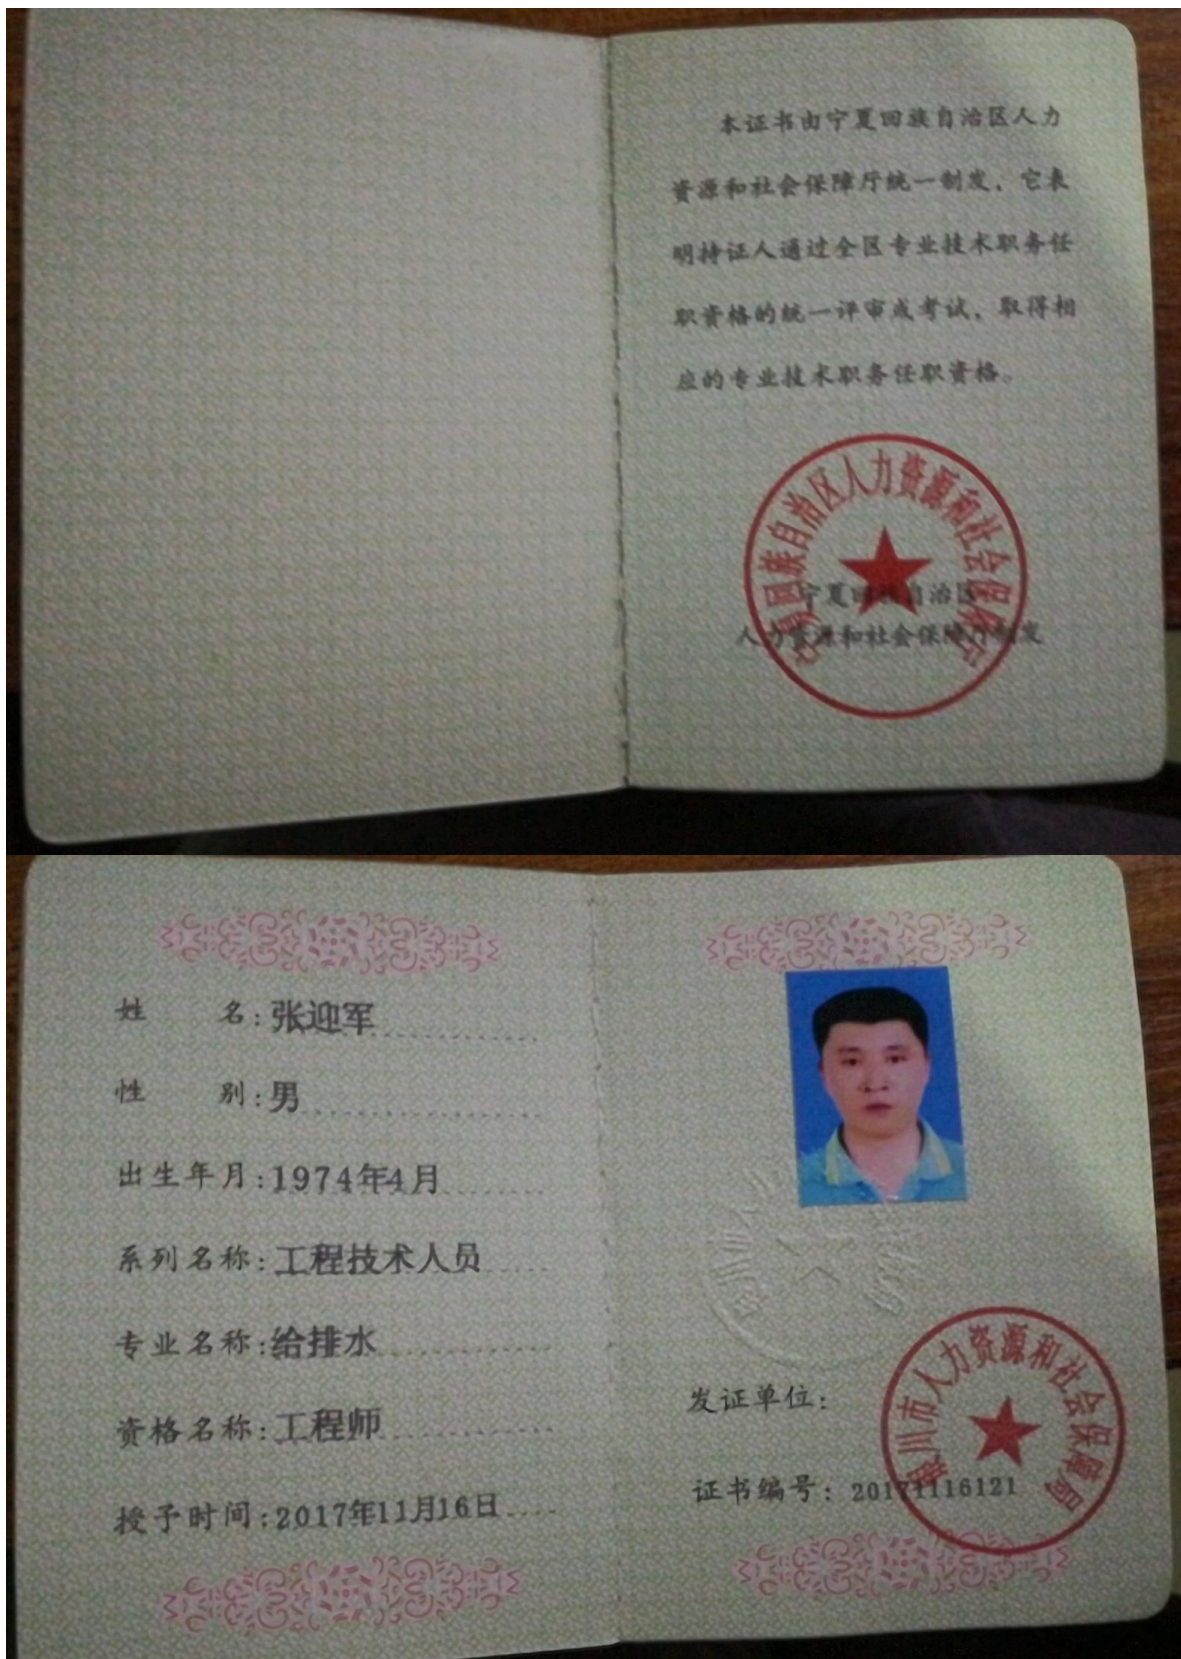 本证书由宁夏回族自治区人力
资源和社会保障厅统一制发，它表
明持证人通过全区专业技术职务任
职资格的统一评审或考试，取得相
应的专业技术职务任职资格。
宁夏回族自治区人力资源和社会保障厅
宁夏回族自治区
人力资源和社会保障厅制发
姓名：张迎军
性别：男
出生年月：1974年4月
系列名称：工程技术人员
专业名称：给排水
资格名称：工程师
授予时间：2017年11月16日
发证单位：
银川市人力资源和社会保障局
证书编号：20171116121